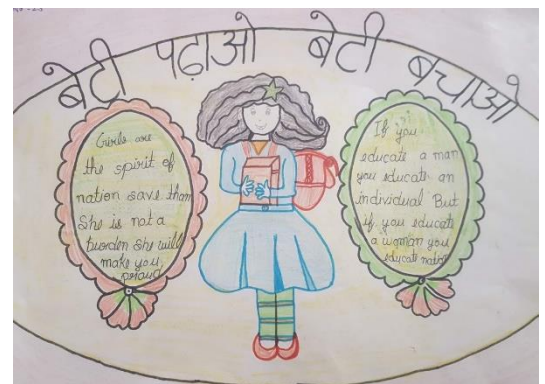 बेटी पढ़ाओ बेटी बचाओ
Girls are
the spirit of
nation save them
She is not a
burden She will
make you
proud
If you
educate a man
you educate an
individual But
if you educate
a woman you
educate nation